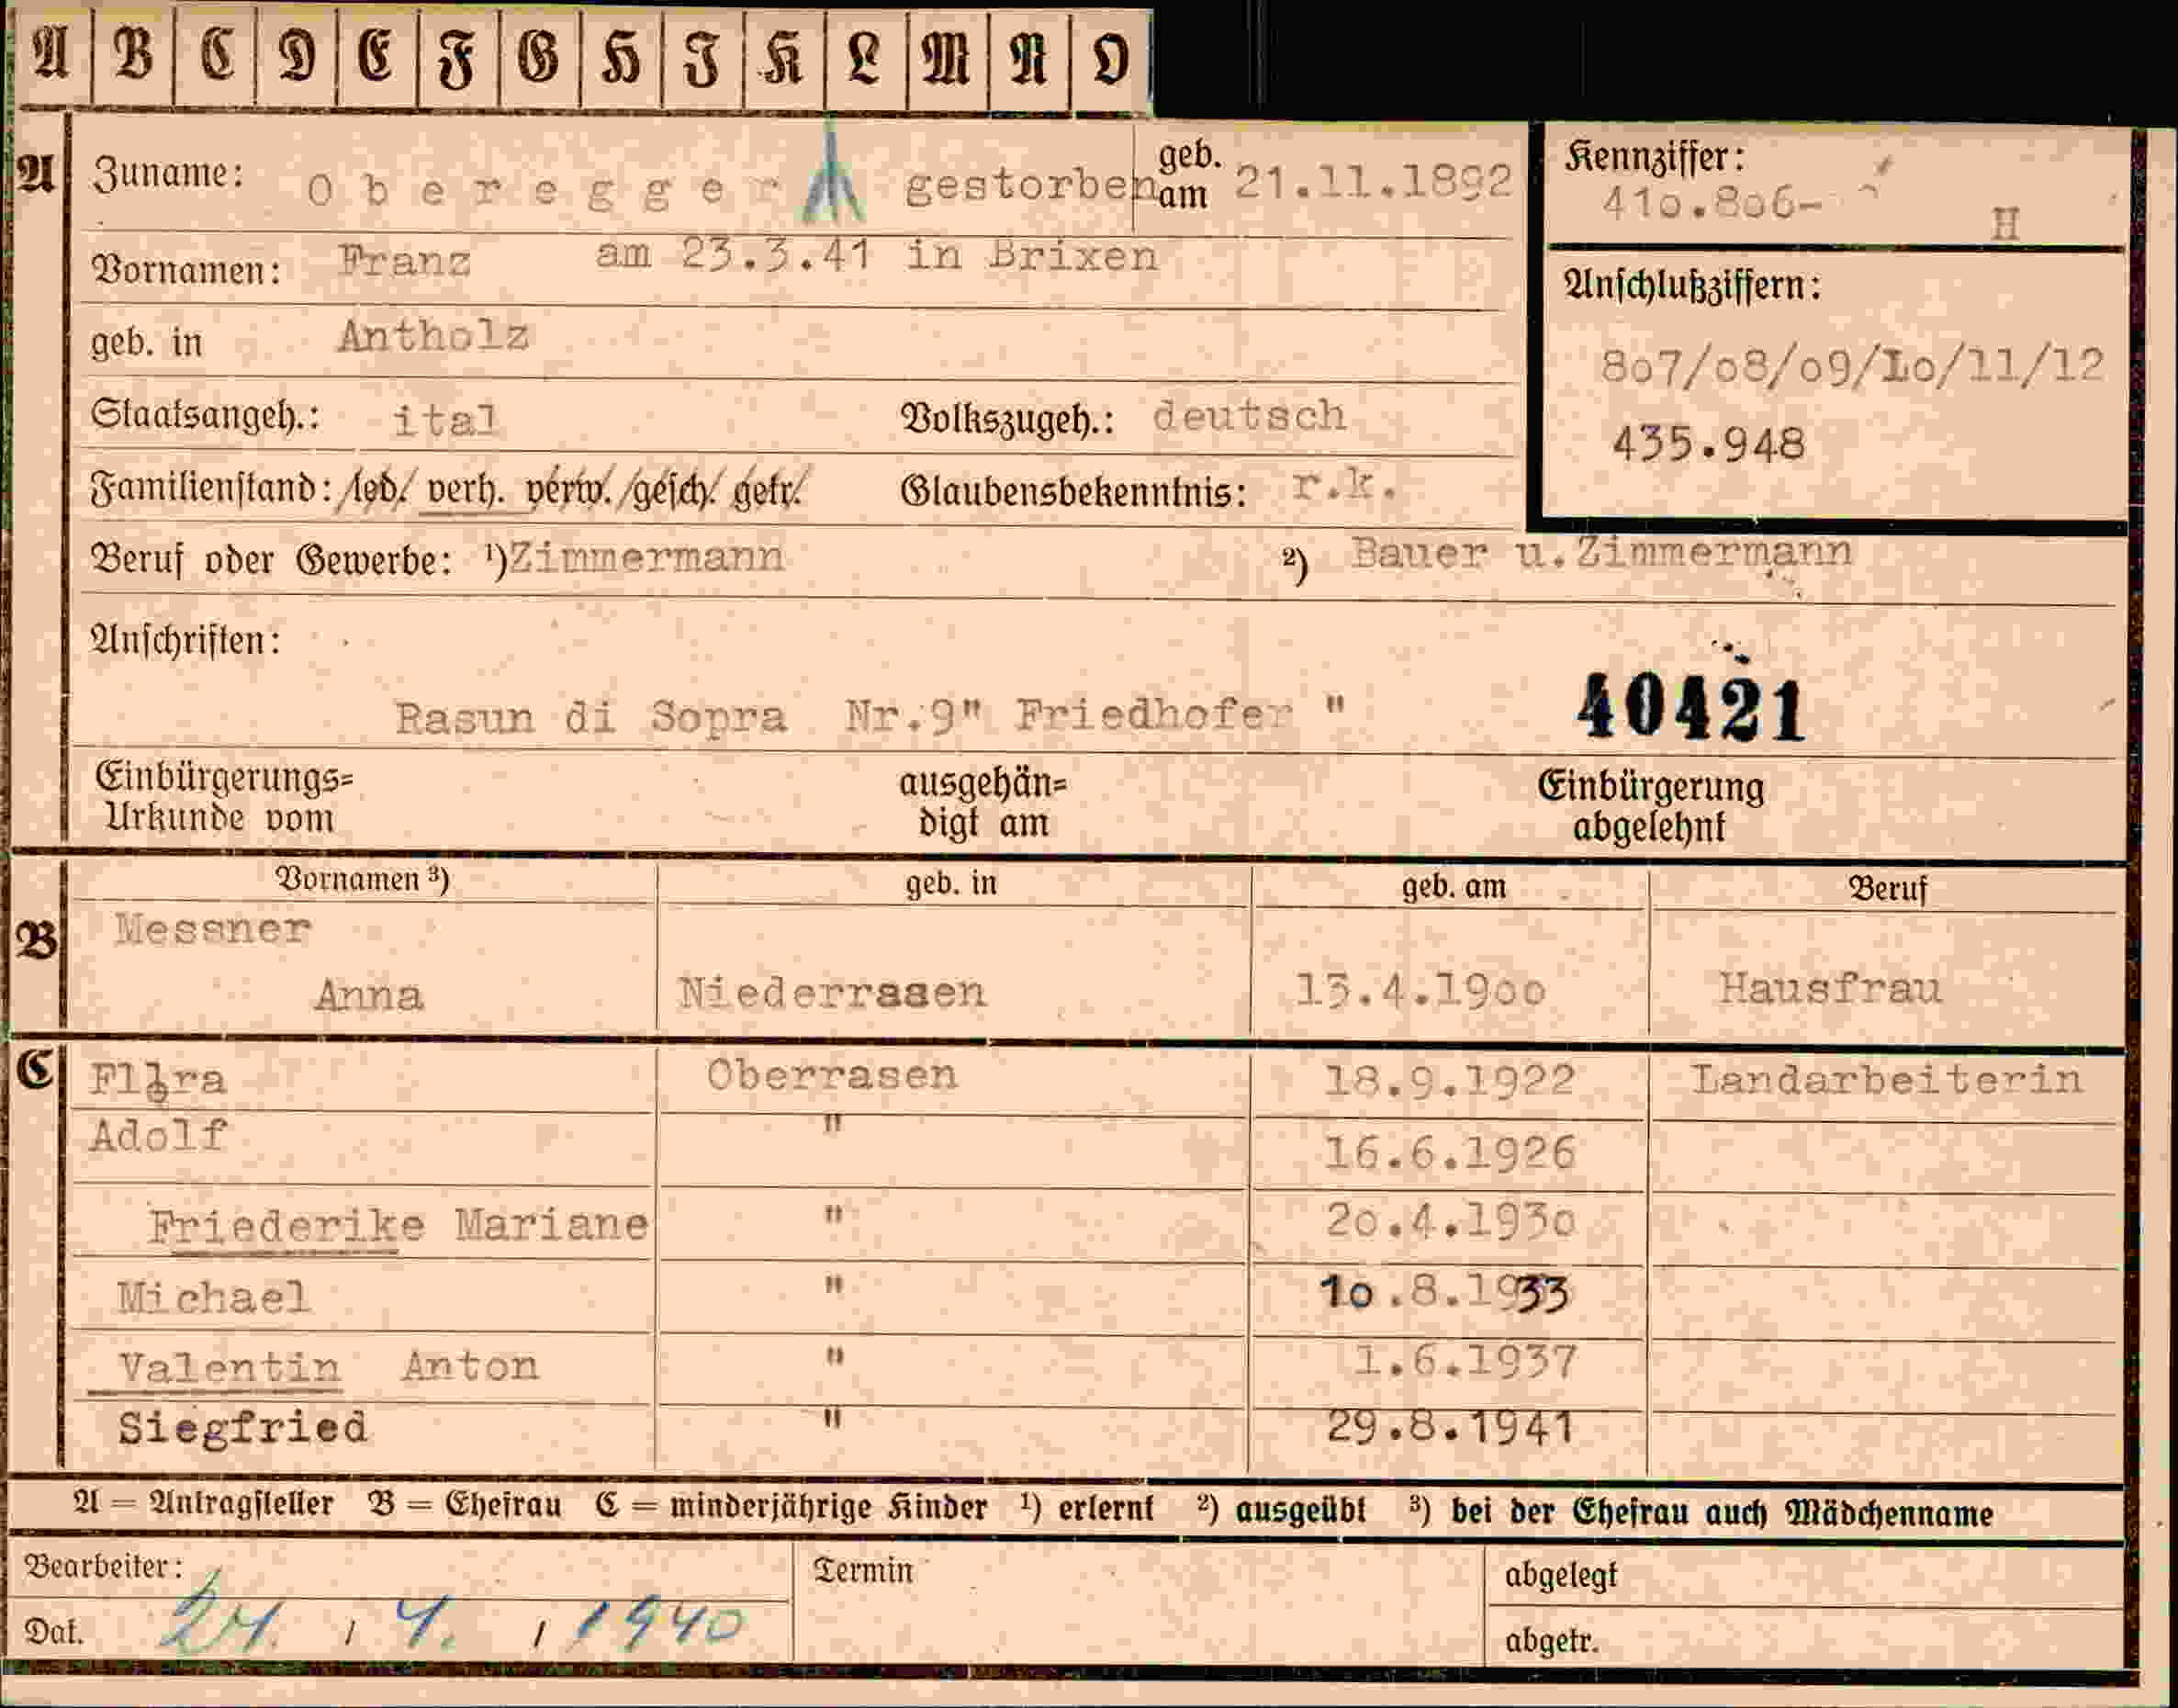 A B C D E F G H I K L M N O
A Zuname: Oberegger gestorben geb. am 21.11.1892
Kennziffer:
410.806- H
Vornamen: Franz am 23.3.41 in Brixen
geb. in Antholz
Anschlußziffern:
807/08/09/10/11/12
435.948
Staatsangeh.: ital Volkszugeh.: deutsch
Familienstand: led. verh. verw. gesch. getr. Glaubensbekenntnis: r.k.
Beruf oder Gewerbe: ¹) Zimmermann ²) Bauer u.Zimmermann
Anschriften:
Rasun di Sopra Nr.9" Friedhofer "
40421
Einbürgerungs=
Urkunde vom
ausgehän=
digt am
Einbürgerung
abgelehnt
Vornamen ³) geb. in geb. am Beruf
B Messner
Anna Niederrasen 13.4.1900 Hausfrau
C Flora Oberrasen 18.9.1922 Landarbeiterin
Adolf " 16.6.1926
Friederike Mariane " 20.4.1930
Michael " 10.8.1933
Valentin Anton " 1.6.1937
Siegfried " 29.8.1941
A = Antragsteller B = Ehefrau C = minderjährige Kinder ¹) erlernt ²) ausgeübt ³) bei der Ehefrau auch Mädchenname
Bearbeiter: Termin abgelegt
Dat. 24. / 4. / 1940 abgetr.